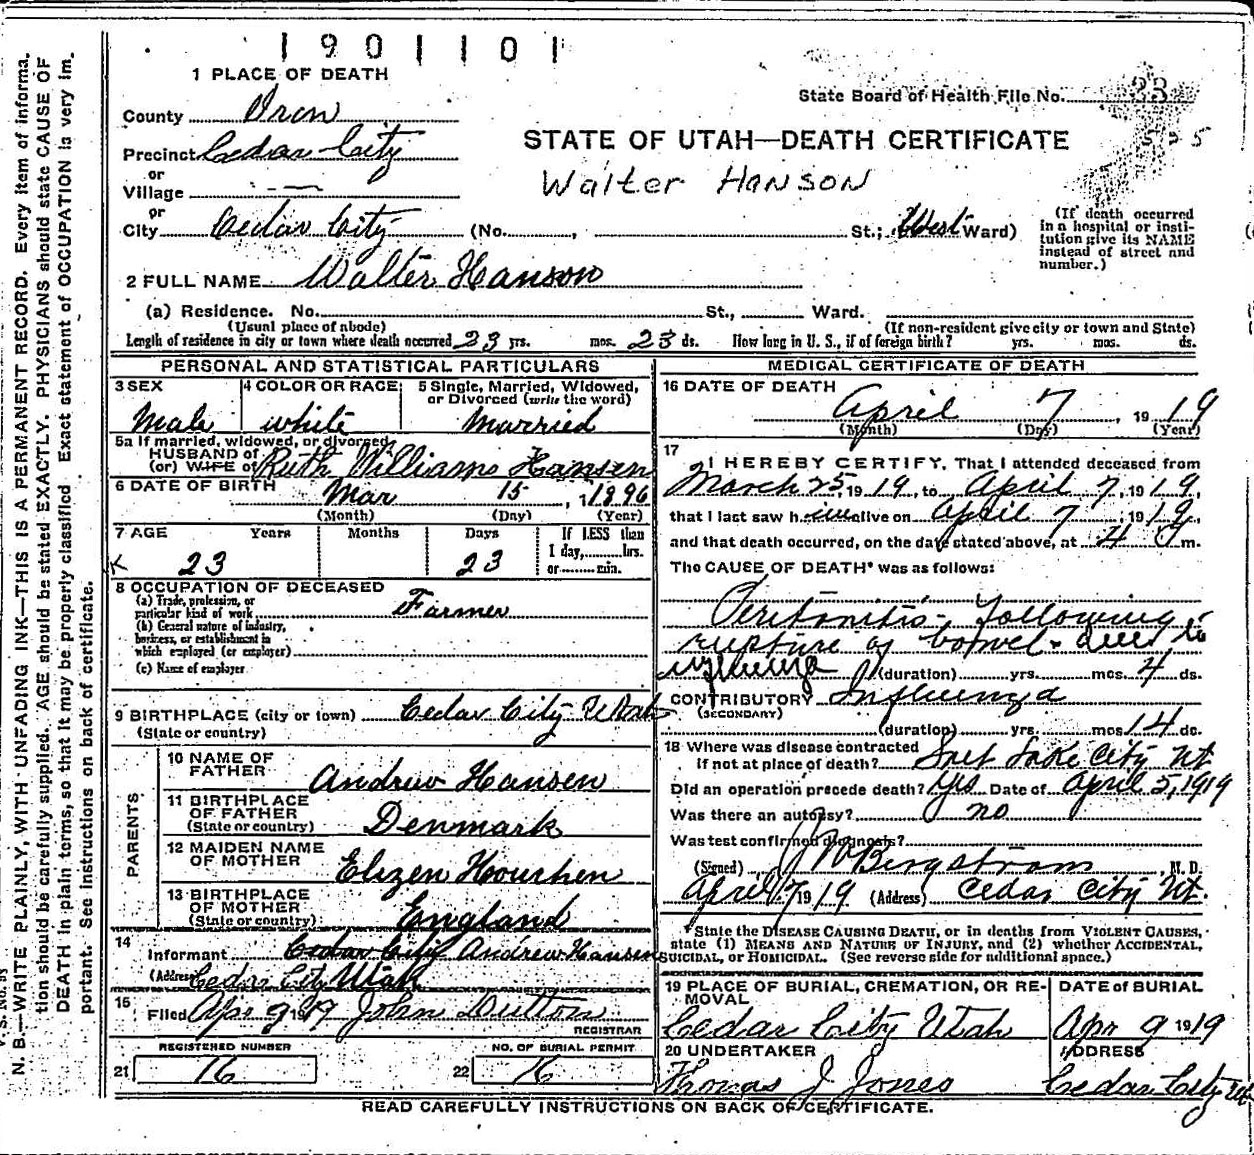 1901101
1 PLACE OF DEATH
State Board of Health File No. 23
County Iron
STATE OF UTAH—DEATH CERTIFICATE
505
Precinct Cedar City
Walter HANSON
or
Village
or
City Cedar City (No. , St.; West Ward)
(If death occurred in a hospital or institution give its NAME instead of street and number.)
2 FULL NAME Walter Hanson
(a) Residence. No. St., Ward.
(Usual place of abode) (If non-resident give city or town and State)
Length of residence in city or town where death occurred 23 yrs. mos. 23 ds. How long in U. S., if of foreign birth? yrs. mos. ds.
PERSONAL AND STATISTICAL PARTICULARS
3 SEX 4 COLOR OR RACE 5 Single, Married, Widowed, or Divorced (write the word)
Male white Married
5a If married, widowed, or divorced
HUSBAND of
(or) WIFE of Ruth Williams Hansen
6 DATE OF BIRTH Mar 15, 1 1896
(Month) (Day) (Year)
7 AGE Years Months Days If LESS than 1 day, hrs. or min.
K 23 23
8 OCCUPATION OF DECEASED
(a) Trade, profession, or particular kind of work Farmer
(b) General nature of industry, business, or establishment in which employed (or employer)
(c) Name of employer
9 BIRTHPLACE (city or town) Cedar City Utah
(State or country)
PARENTS
10 NAME OF FATHER Andrew Hansen
11 BIRTHPLACE OF FATHER (State or country) Denmark
12 MAIDEN NAME OF MOTHER
13 BIRTHPLACE OF MOTHER (State or country) England
14 Informant Cedar City Andrew Hansen
(Address) Cedar City Utah
15 Filed Apr 9 1919 John Dutton
REGISTRAR
REGISTERED NUMBER NO. OF BURIAL PERMIT
21 16 22 16
MEDICAL CERTIFICATE OF DEATH
16 DATE OF DEATH
April 7, 1919
(Month) (Day) (Year)
17 I HEREBY CERTIFY, That I attended deceased from
March 25, 1919, to April 7, 1919,
that I last saw him alive on April 7, 1919,
and that death occurred, on the date stated above, at 4 m.
The CAUSE OF DEATH* was as follows:
Peritonitis following
rupture of bowel - due to
influenza (duration) yrs. mos. 4 ds.
CONTRIBUTORY Influenza
(SECONDARY)
(duration) yrs. mos. 14 ds.
18 Where was disease contracted
if not at place of death? Salt Lake City Ut
Did an operation precede death? Yes Date of April 5, 1919
Was there an autopsy? no
Was test confirmed diagnosis?
(Signed) J W Bergstrom, M. D.
April 7 1919 (Address) Cedar City Ut.
*State the DISEASE CAUSING DEATH, or in deaths from VIOLENT CAUSES,
state (1) MEANS AND NATURE OF INJURY, and (2) whether ACCIDENTAL,
SUICIDAL, or HOMICIDAL. (See reverse side for additional space.)
19 PLACE OF BURIAL, CREMATION, OR REMOVAL DATE OF BURIAL
Cedar City Utah Apr 9 1919
20 UNDERTAKER ADDRESS
Thomas J Jones Cedar City Ut.
READ CAREFULLY INSTRUCTIONS ON BACK OF CERTIFICATE.
V. S. No.
N. B.—WRITE PLAINLY, WITH UNFADING INK—THIS IS A PERMANENT RECORD. Every item of informa-
tion should be carefully supplied. AGE should be stated EXACTLY. PHYSICIANS should state CAUSE OF
DEATH in plain terms, so that it may be properly classified. Exact statement of OCCUPATION is very im-
portant. See instructions on back of certificate.